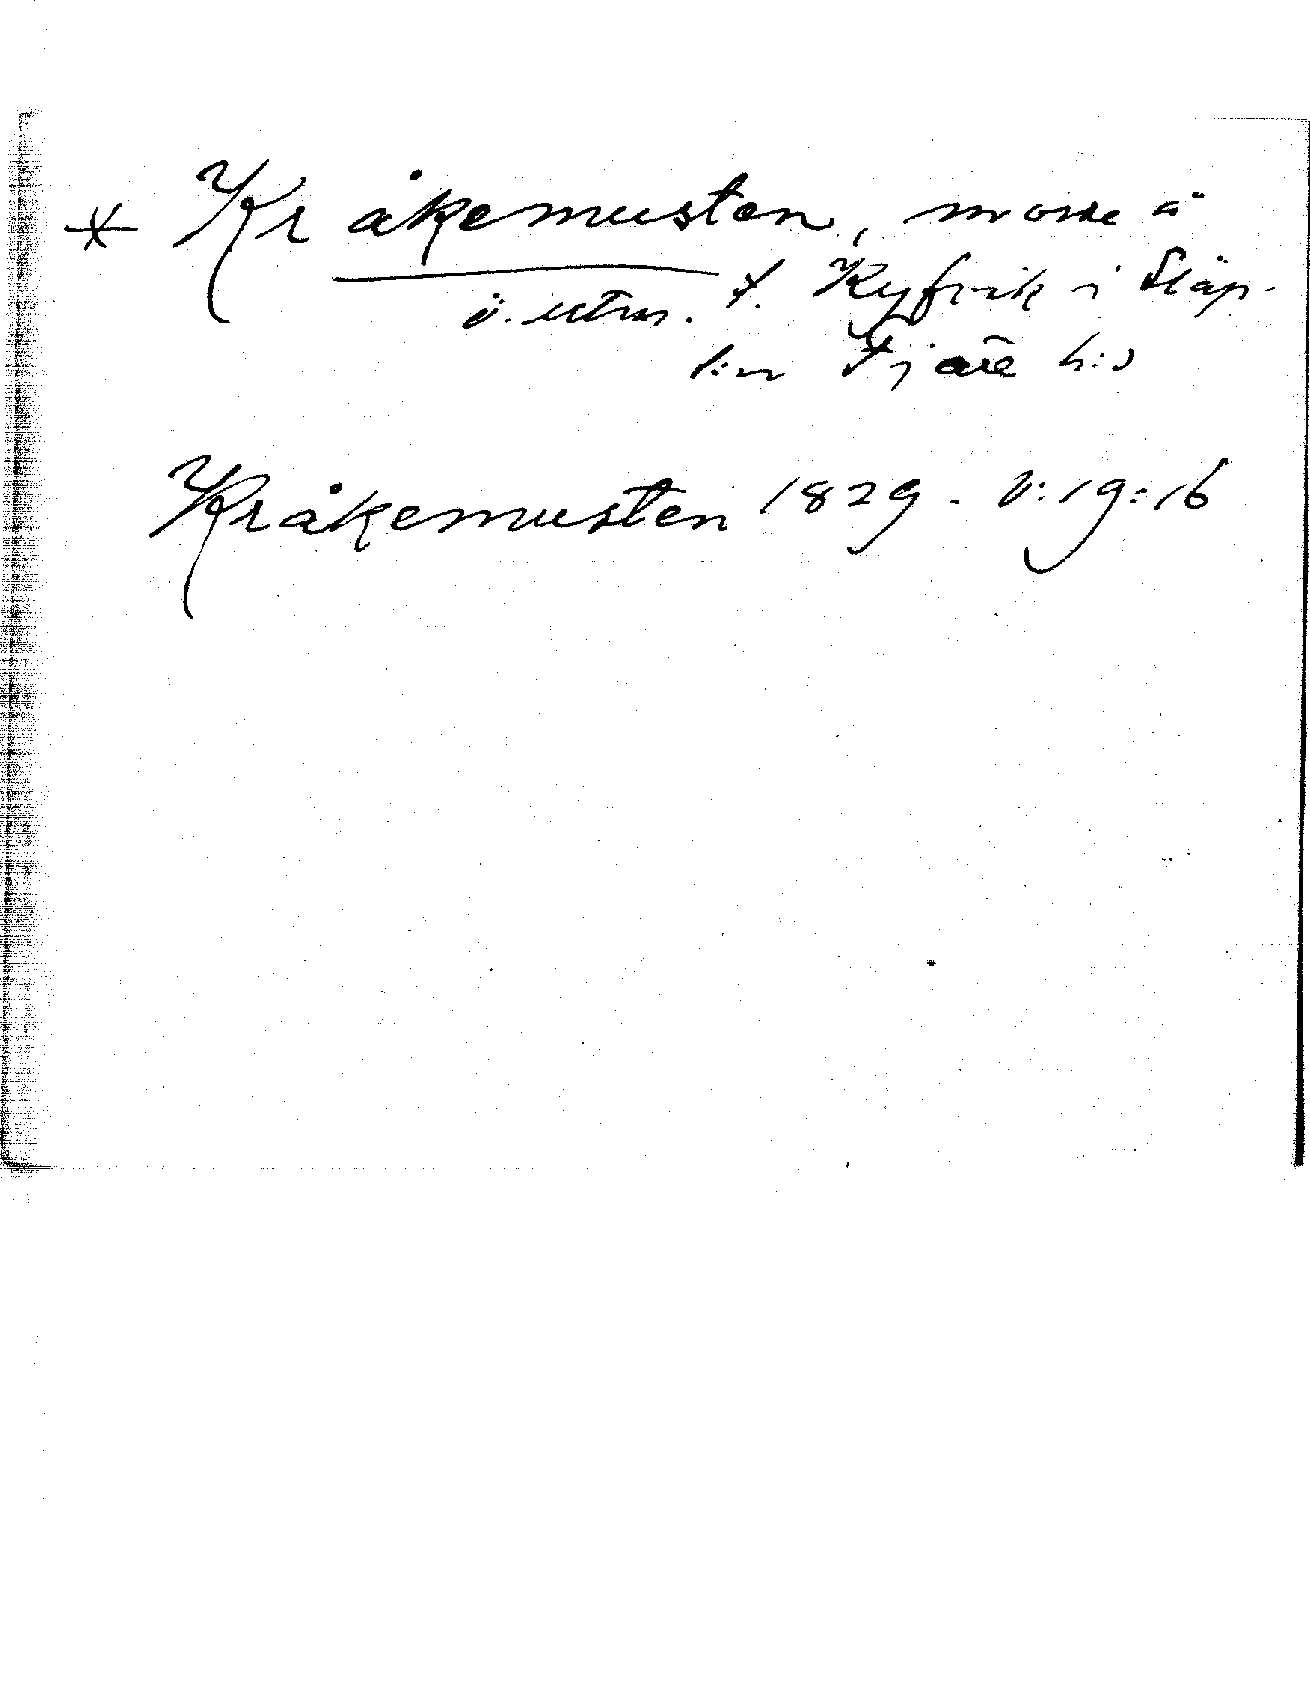 * Kråkemusten, mosse å
ö. utm. f. Kyfvik i Släp
s:n Fjäre h:d
Kråkemusten 1829. V:19:16